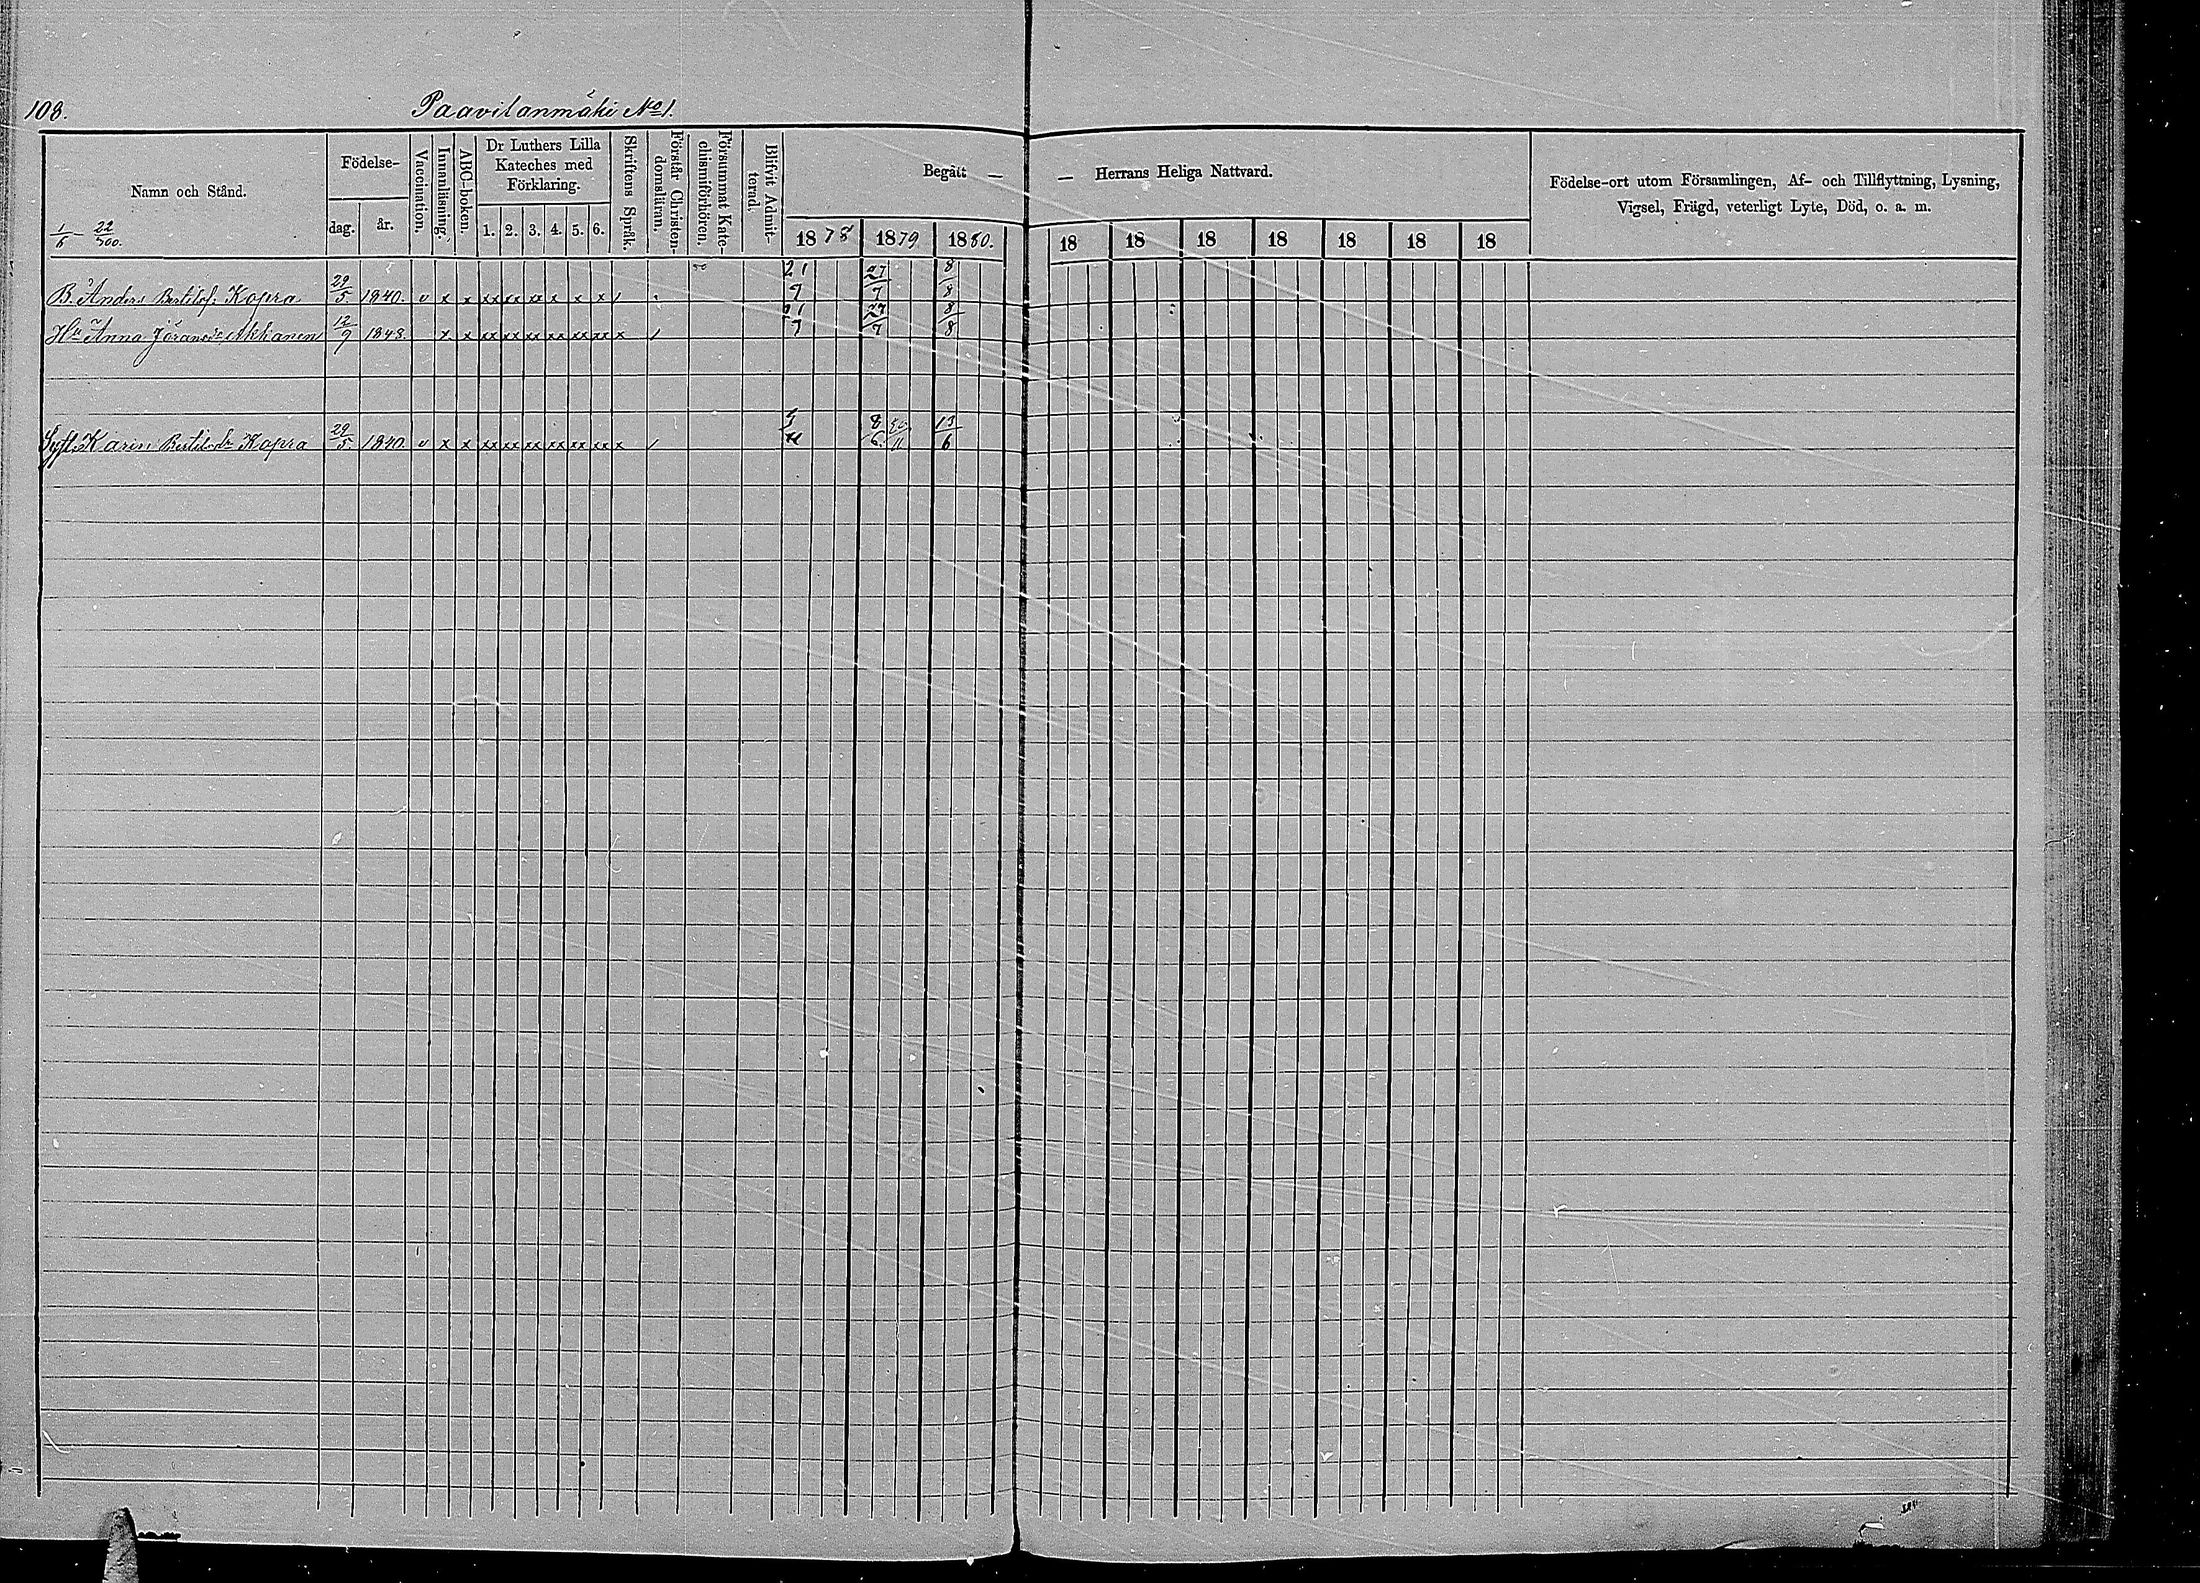 108.
Paavilanmäki No 1.
Namn och Stånd.
1/6 – 22/300.
Födelse-
dag.
år.
Vaccination.
Innanläsning.
ABC-boken.
Dr Luthers Lilla
Kateches med
Förklaring.
1. 2. 3. 4. 5. 6.
Skriftens Språk.
Förstår Christen-
domsläran.
Försummat Kate-
chismiförhören.
Blifvit Admit-
terad.
Begått —
— Herrans Heliga Nattvard.
1878 1879 1880. 18 18 18 18 18 18 18
Födelse-ort utom Församlingen, Af- och Tillflyttning, Lysning,
Vigsel, Frägd, veterligt Lyte, Död, o. a. m.
B. Anders Bertilsf. Kopra 29/5 1840. v x x xx xx xx x x x / 21/7 27/7 8/8
Hu Anna Jöransdr Akkanen 12/9 1848. x x xx xx xx xx xx xx x / 21/7 27/7 8/8
Karin Bertilsdr Kopra 29/5 1840. v x x xx xx xx xx xx xx x / 8/6 13/6